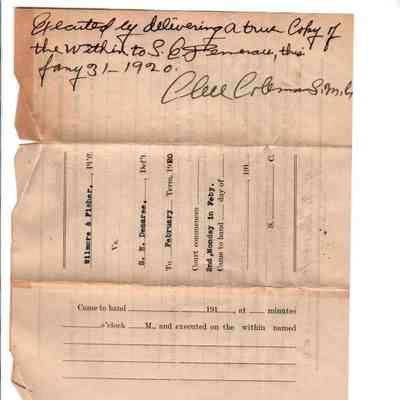 Executed by delivering a true Copy of
the within to S. E. Demaree, this
Jany 31-1920.
Coleman S.M.C.
Wilmore & Fisher, Pl'ff.
Vs.
S. E. Demaree, Def't.
To February Term, 1920
Court commences
2nd, Monday in Feby.
Came to hand day of
191
S. C.
Came to hand 191 , at minutes
o'clock M., and executed on the within named